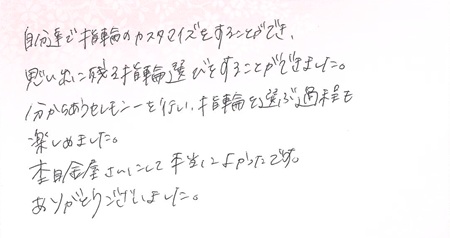 自分達で指輪のカスタマイズをすることができ、
思い出に残る指輪選びをすることができました。
分かちあうセレモニーを行い、指輪を選ぶ過程も
楽しめました。
杢目金屋さんにして本当によかったです。
ありがとうございました。